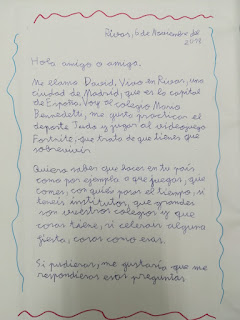 Rivas, 6 de Noviembre del
2018
Hola amigo o amiga.
Me llamo David, Vivo en Rivas, una
ciudad de Madrid, que es la capital
de España. Voy al colegio Mario
Benedetti, me gusta practicar el
deporte Judo y jugar al videojuego
Fortnite, que trata de que tienes que
sobrevivir.
Quiero saber que haces en tu país
como por ejemplo a que juegas, que
comes, con quién pasas el tiempo, si
teneis institutos, que grandes
son vuestros colegios y que
cosas tiene, si celebrais alguna
fiesta, cosas como esas.
Si pudieras, me gustaría que me
respondieras esas preguntas